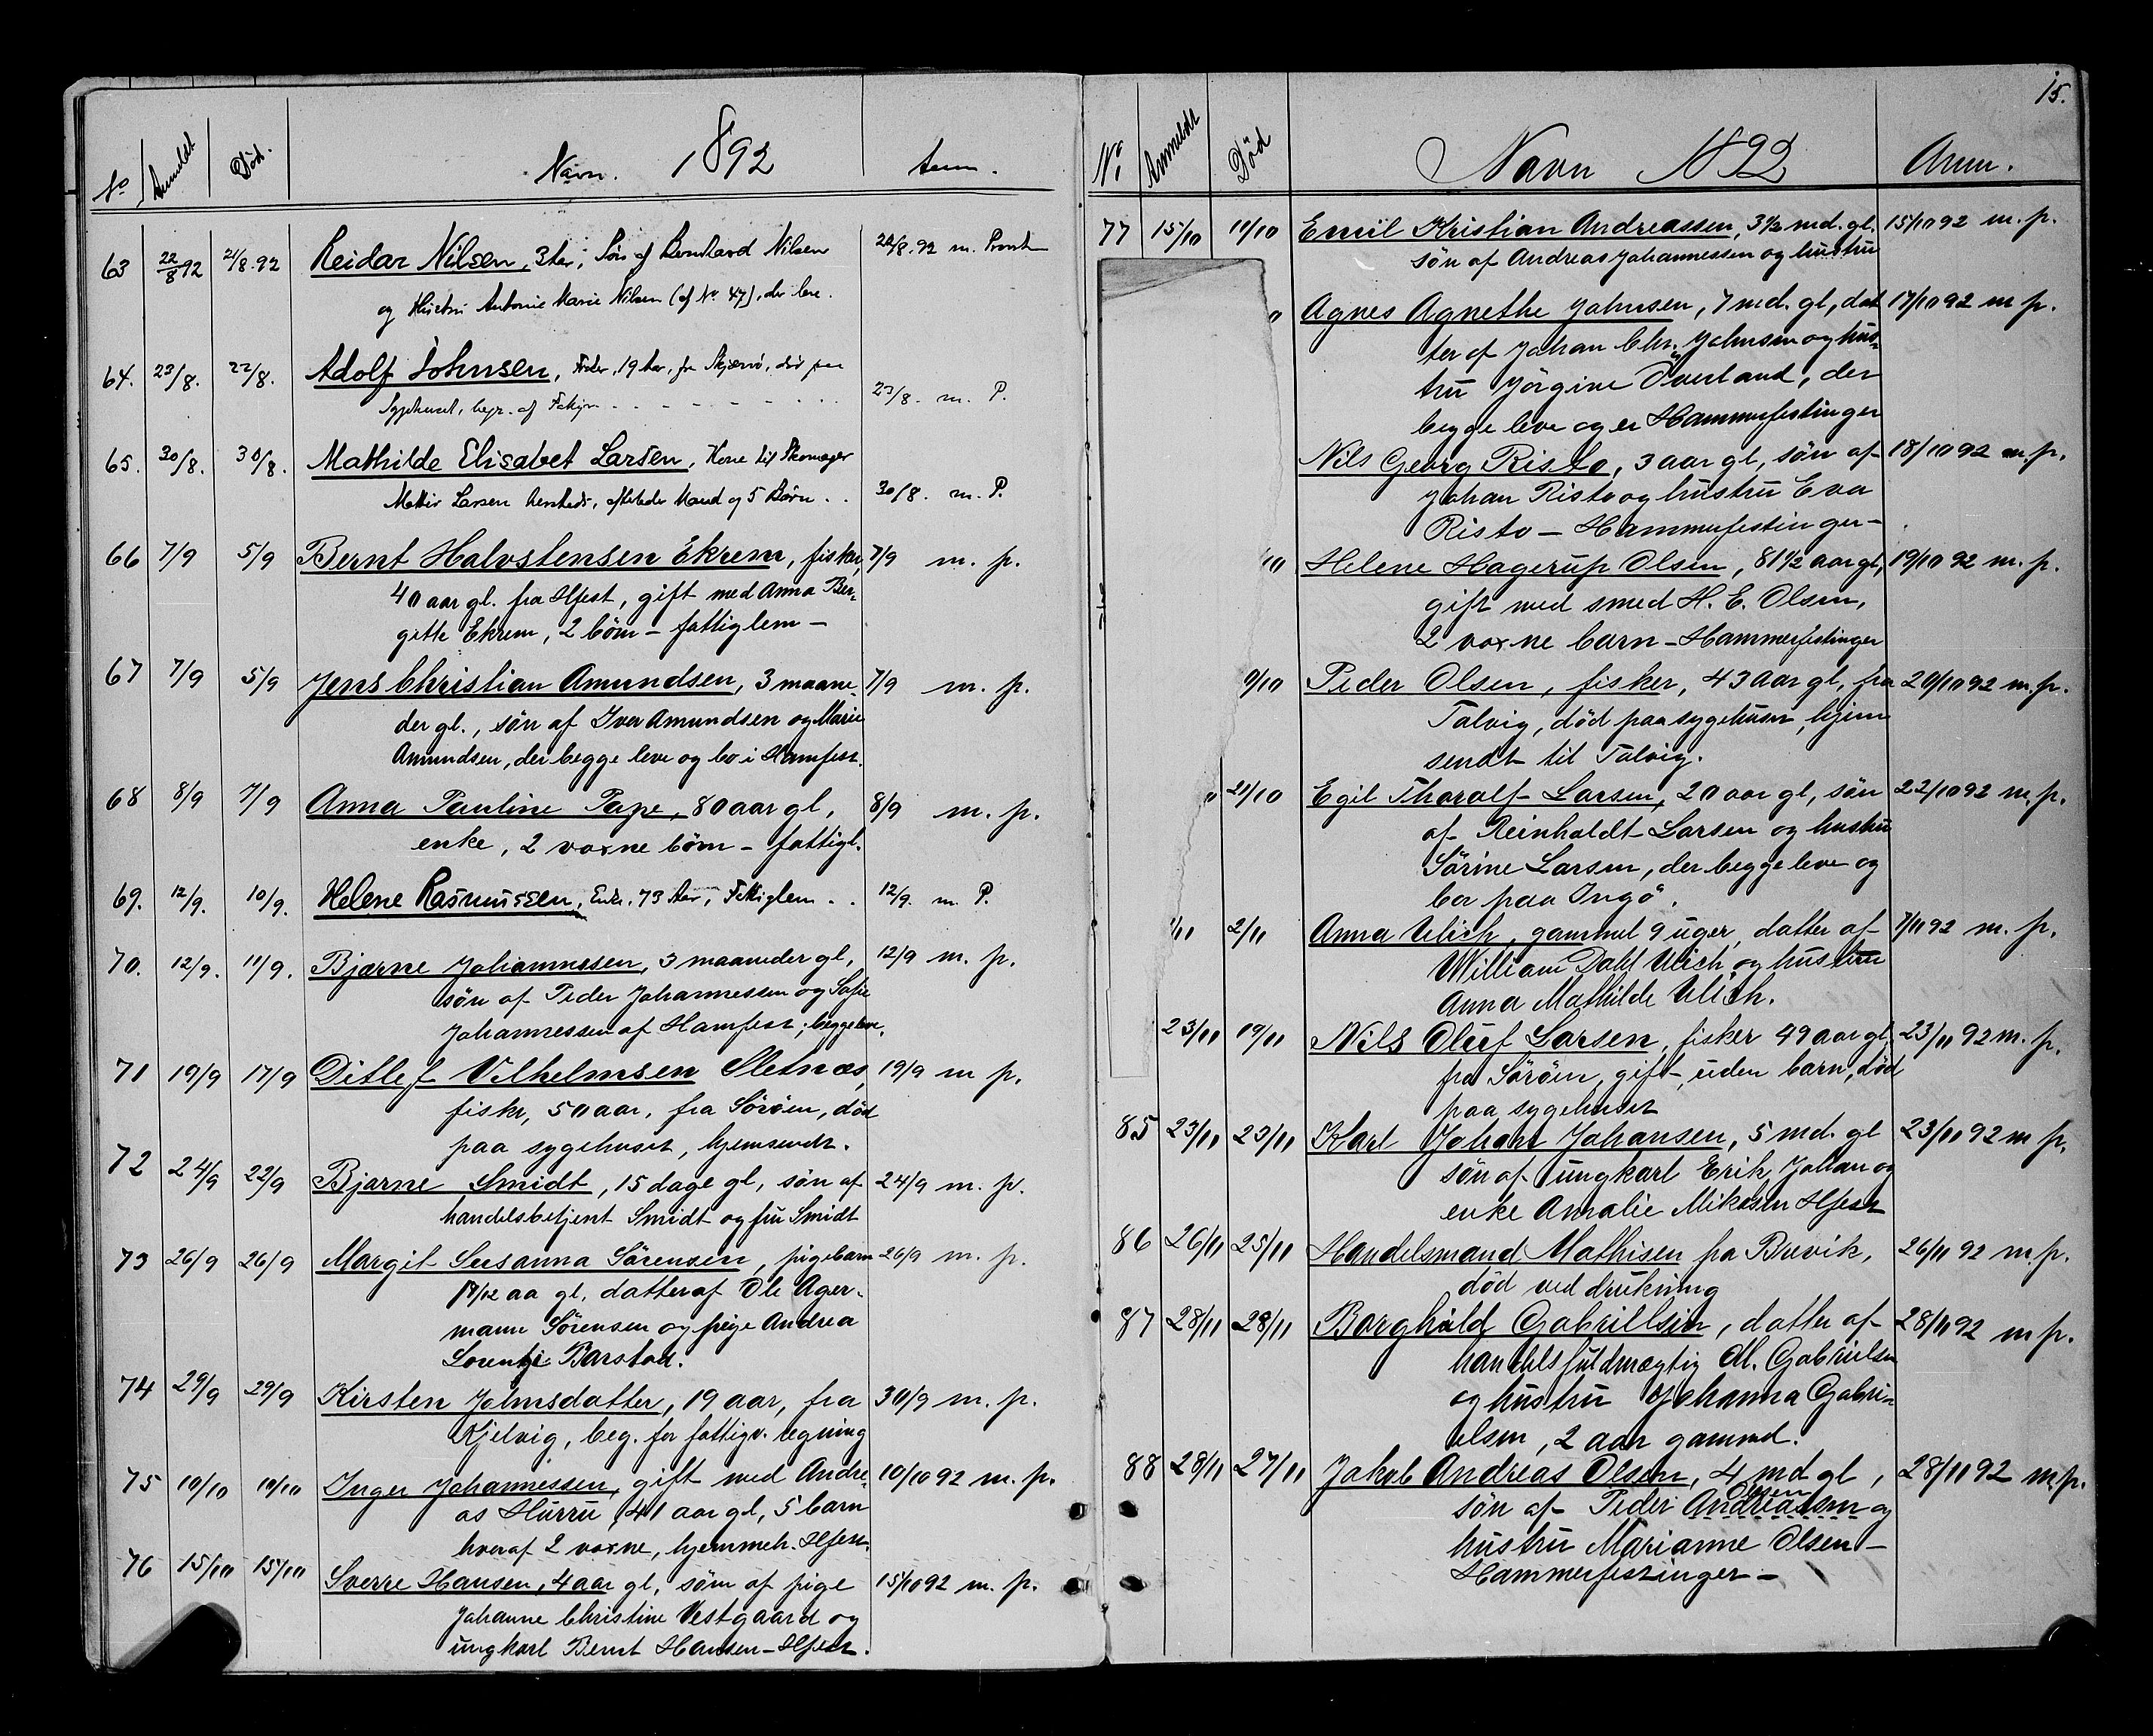 No Anmeldt Död. Navn. 1892 Anm.
63 22/8 92 21/8.92 Reidar Nilsen, 3 Aar, Søn af Bernhard Nilsen 22/8.92 m.
og Hustru Antonie Marie Nilsen (cf No. 47), der leve.
64. 23/8. 22/8. Adolf Johnsen, Fisker, 19 Aar, fra Skjærvö, död paa
Sygehuset, begr. af 23/8. m. P.
65. 30/8. 30/8. Mathilde Elisabet Larsen, Kone til Skomager
Larsen hersteds, efterlader Mand og 5 Børn . . 30/8. m. P.
66 7/9 5/9 Bernt Halvstensen Ekrem, fisker, 7/9 m. p.
40 aar gl. fra Hfest, gift med Anna Ber-
gitte Ekrem, 2 börn – fattiglem –
67 7/9 5/9 Jens Christian Amundsen, 3 maane- 7/9 m. p.
der gl., sön af Iver Amundsen og Marie
Amundsen, der begge leve og bo i Hamfest.
68 8/9 7/9 Anna Pauline Pape, 80 aar gl, 8/9 m. p.
enke, 2 voxne börn – fattigl.
69. 12/9. 10/9. Helene Rasmussen, Enke, 73 Aar, Fattiglem . . 12/9. m. P.
70. 12/9. 11/9. Bjarne Johannessen, 3 maaneder gl, 12/9 m. p.
sön af Peder Johannessen og Sofie
Johannessen af Hamfest; begge leve.
71 19/9 17/9 Ditlef Vilhelmsen Sletnæs, 19/9 m p.
fisker, 50 aar, fra Söröen, död
paa sygehuset, hjemsendt.
72 24/9 22/9 Bjarne Smidt, 15 dage gl, sön af 24/9 m. p.
handelsbetjent Smidt og fru Smidt
73 26/9 26/9 Margit Susanna Sörensen, pigebarn 26/9 m. p.
aa gl. datter af Ole Ager-
mann Sörensen og pige Andrea
Lorentze Barstad.
74 29/9 29/9 Kirsten Johnsdatter, 19 aar, fra 30/9 m. p.
Kjelvig, beg. for fattigv. regning
75 10/10 10/10 Inger Johannessen, gift med Andre- 10/10 92 m. p.
as Hurru, 41 aar gl, 5 barn
hveraf 2 voxne, hjemmeh. Hfest.
76 15/10 15/10 Sverre Hansen, 4 aar gl, sön af pige 15/10 92 m. p.
Johanne Christine Vestgaard og
ungkarl Bernt Hansen – Hfest.
15.
No Anmeldt Död Navn 1892 Anm.
77 15/10 11/10 Emil Kristian Andreassen, 3 1/2 md. gl. 15/10 92 m. p.
sön af Andreas Johannessen og hustru
Agnes Agnethe Johnsen, 7 md. gl, dat 17/10 92 m p.
ter af Johan Chr. Johnsen og hus-
tru Jörgine Överland, der
begge leve og er Hammerfestinger
Nils Georg Risto, 3 aar gl, sön af 18/10 92 m. p.
Johan Risto og hustru Eva
Risto – Hammerfestinger –
/10 Helene Hagerup Olsen, 81 1/2 aar gl, 19/10 92 m. p.
gift med smed H. E. Olsen,
2 voxne barn – Hammerfestinger
/10 Peder Olsen, fisker, 43 aar gl, fra 20/10 92 m. p.
Talvig, död paa sygehuset, hjem
sendt til Talvig.
21/10 Egil Tharalf Larsen, 20 aar gl, sön 22/10 92 m. p.
af Reinholdt Larsen og hustru
Sörine Larsen, der begge leve og
bor paa Ingö.
/11 2/11 Anna Ulich, gammel 9 uger, datter af 7/11 92 m. p.
William Dahl Ulich og hustru
Anna Mathilde Ulich.
23/11 19/11 Nils Oluf Larsen, fisker 49 aar gl, 23/11 92 m. p.
fra Söröen, gift, uden barn, död
paa sygehuset
85 23/11 23/11 Karl Johan Johansen, 5 md. gl 23/11 92 m p.
sön af ungkarl Erik Johan og
enke Amalie Mikalsen Hfest
86 26/11 25/11 Handelsmand Mathisen fra Buvik, 26/11 92 m. p.
död ved drukning
87 28/11 28/11 Borghild Gabrillsen, datter af 28/11 92 m p.
handelsfuldmægtig M. Gabrielsen
og hustru Johanna Gabri-
elsen, 2 aar gammel.
88 28/11 27/11 Jakob Andreas Olsen, 4 md gl, 28/11 92 m. p.
sön af Peder Andreassen Olsen og
hustru Marianne Olsen –
Hammerfestinger –